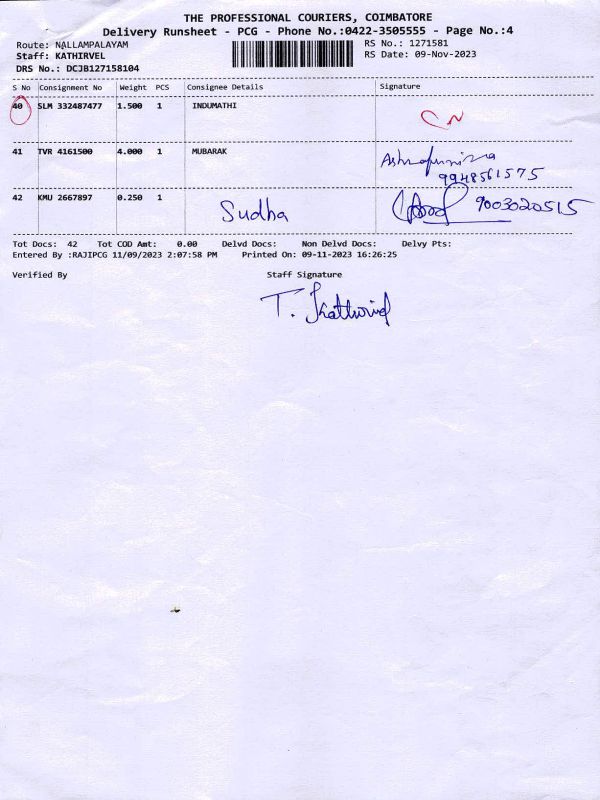 THE PROFESSIONAL COURIERS, COIMBATORE
Delivery Runsheet - PCG - Phone No.:0422-3505555 - Page No.:4
Route: NALLAMPALAYAM RS No.: 1271581
Staff: KATHIRVEL RS Date: 09-Nov-2023
DRS No.: DCJB127158104
S No Consignment No Weight PCS Consignee Details Signature
40 SLM 332487477 1.500 1 INDUMATHI
CN
41 TVR 4161500 4.000 1 MUBARAK
9948561575
42 KMU 2667897 0.250 1 Sudha 9003020515
Tot Docs: 42 Tot COD Amt: 0.00 Delvd Docs: Non Delvd Docs: Delvy Pts:
Entered By :RAJIPCG 11/09/2023 2:07:58 PM Printed On: 09-11-2023 16:26:25
Verified By Staff Signature
T.